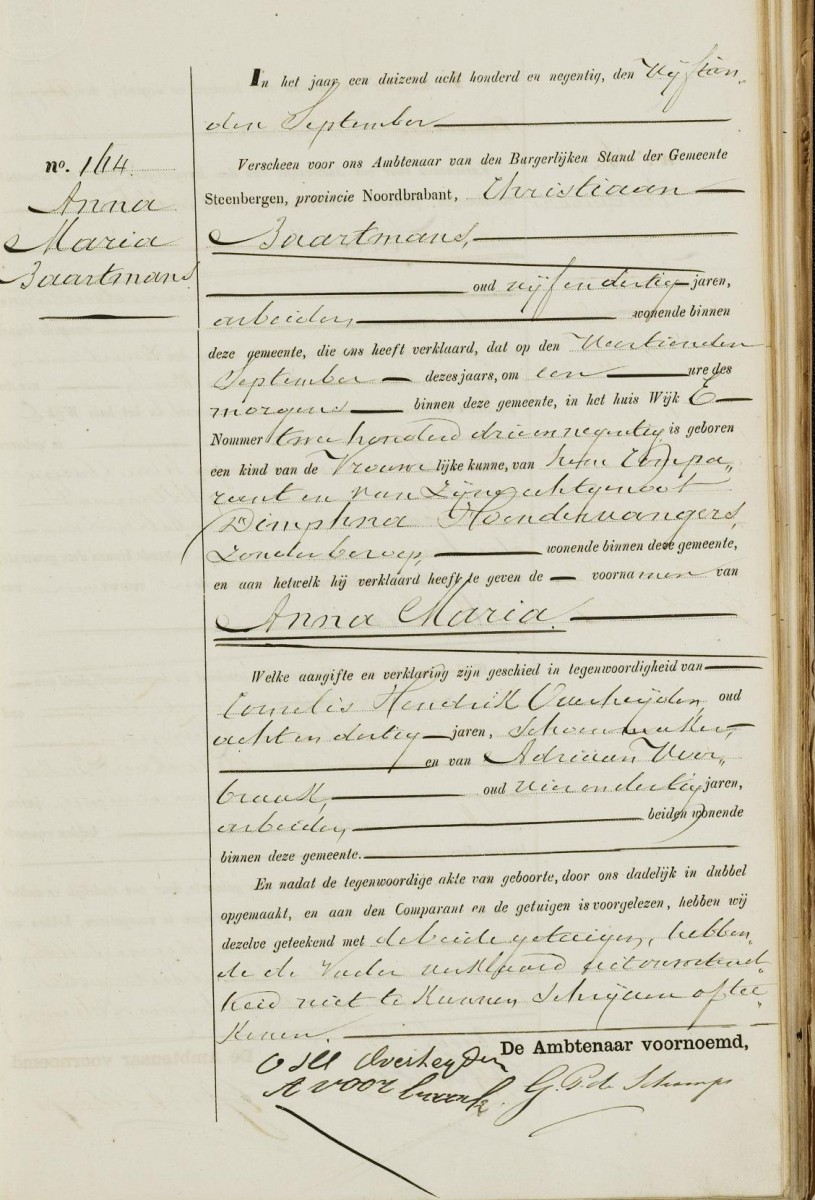 nº. 144
Anna
Maria
Baartmans
In het jaar een duizend acht honderd en negentig, den Vijftien-
den September
Verscheen voor ons Ambtenaar van den Burgerlijken Stand der Gemeente
Steenbergen, provincie Noordbrabant, Christiaan
Baartmans,
oud vijfendertig jaren,
arbeider, wonende binnen
deze gemeente, die ons heeft verklaard, dat op den Veertienden
September dezes jaars, om een ure des
morgens binnen deze gemeente, in het huis Wijk E
Nommer twee honderd drieennegentig is geboren
een kind van de Vrouwelijke kunne, van hem Compa„
rant en van zijne echtgenoot
Dimphna Hoendervangers,
zonder beroep, wonende binnen deze gemeente,
en aan hetwelk hij verklaard heeft te geven de voornamen van
Anna Maria.
Welke aangifte en verklaring zijn geschied in tegenwoordigheid van
Cornelis Hendrik Overheijden, oud
achtendertig jaren, Schoenmaker,
en van Adriaan Voor„
braak, oud vierendertig jaren,
arbeider, beiden wonende
binnen deze gemeente.
En nadat de tegenwoordige akte van geboorte, door ons dadelijk in dubbel
opgemaakt, en aan den Comparant en de getuigen is voorgelezen, hebben wij
dezelve geteekend met de beide getuigen, hebben-
de de Vader verklaard uit onvastheid
niet te kunnen schrijven of tee-
kenen.
De Ambtenaar voornoemd,
C H Overheyden
A voorbraak.